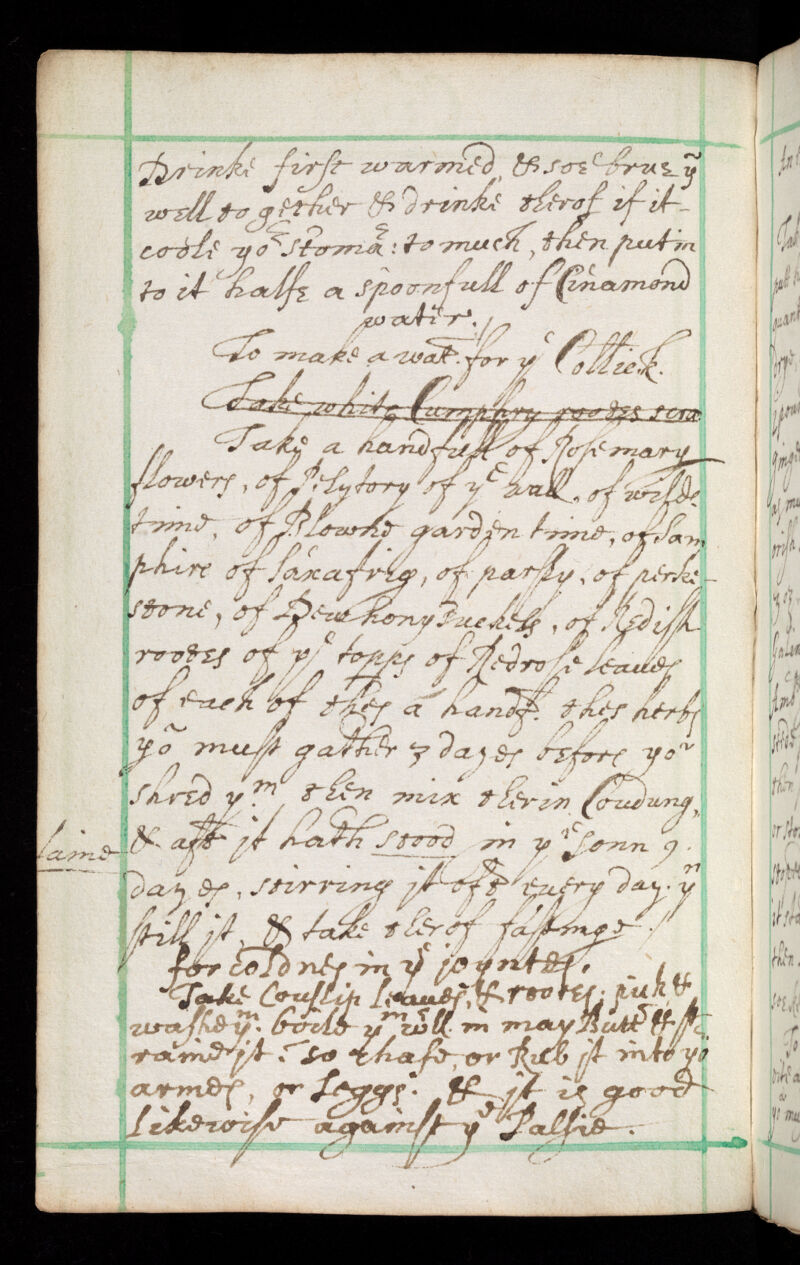 Drinke first warmed, & soe bruz yᵐ
well together & drinke therof if it
coole yoʳ stoma: to much, then put in
to it halfe a spoonfull of Cinamond
water.
To make a wat. for yᵉ Collick.
Take white Cumphry rootes scra
Take a handfull of Rosemary
flowers, of Pelytory of yᵉ wall, of wilde
time, of Blowne garden time, of Sam
phire of Saxafrig, of parsly, of perke
stone, of Dew honysuckels, of Redish
rootes of yᵉ topps of Redrose leaues
of each of thes a handf. thes herbs
yõ must gather 3 dayes before yoʷ
shred yᵐ. then mix therin Coudung,
& aft it hath stood in yᵉ Sonn 9.
dayes, stirring it oft euery day. yⁿ
still it, & take therof fastinge.
for coldnes in yᵉ joyntes.
Take Couslip leaues, & rootes; pick &
washe yᵐ. boile yᵐ well in may Butt & st
raine it. so chafe, or Rub it into yõ
armes, or Leggs. & it is good
likewise against yᵉ Palsie.
laine